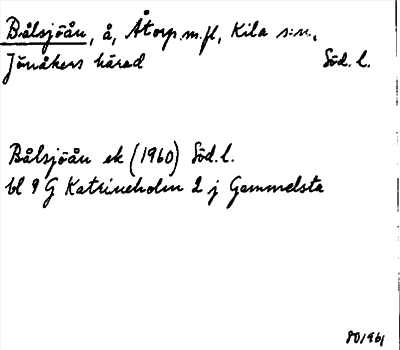 Bålsjöån, å, Åtorp m.fl, Kila s:n.,
Jönåkers härad Söd. l.
Bålsjöån ek (1960) Söd. l.
bl 9 G Katrineholm 2 j Gammelsta
80/961